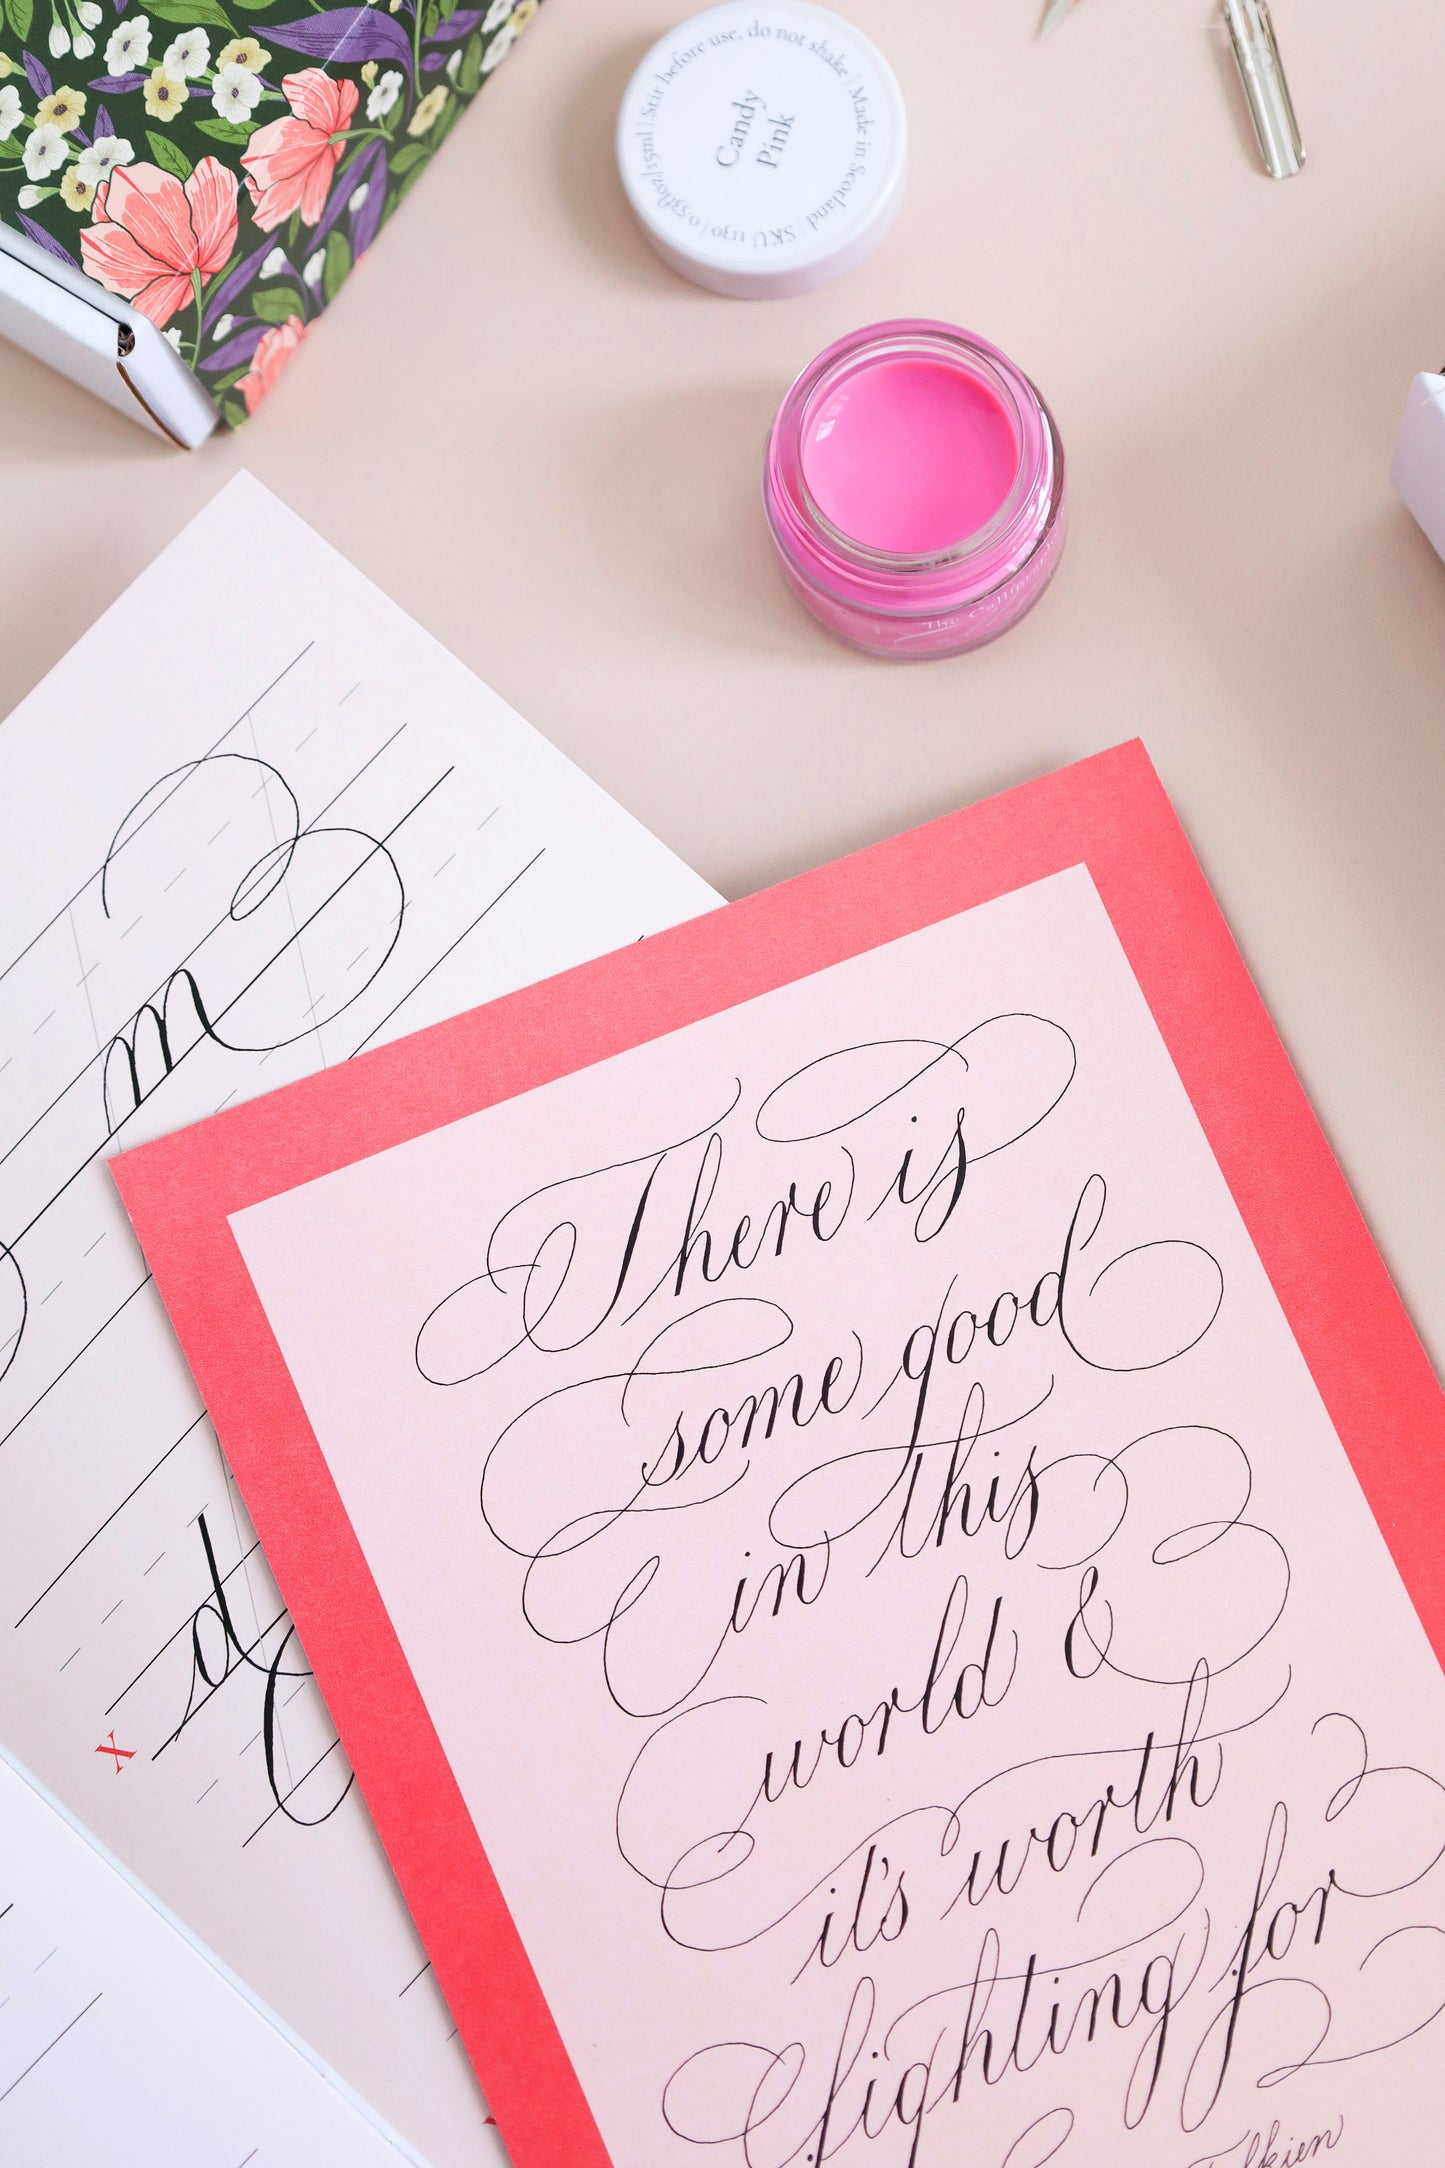 Stir before use, do not shake | Made in Scotland | SKU 1130 | 0.53floz/15ml |
Candy
Pink
The Calligraphy
m
d
x
There is
some good
in this
world &
it's worth
fighting for